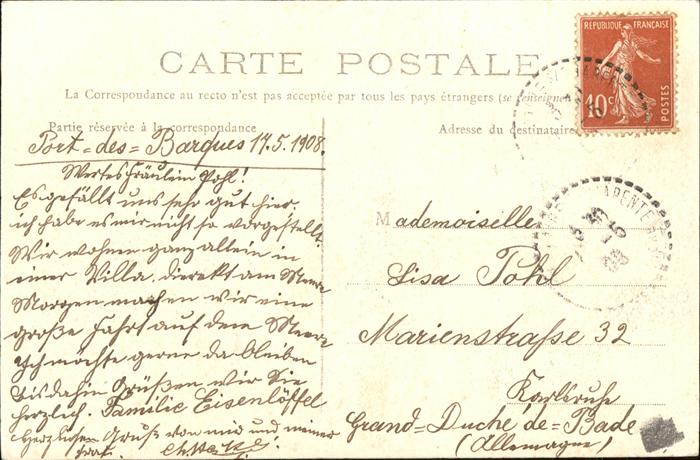 CARTE POSTALE
La Correspondance au recto n'est pas acceptée par tous les pays étrangers (se renseigner
RÉPUBLIQUE FRANÇAISE
10c
POSTES
Partie réservée à la correspondance
Adresse du destinataire
Port-des-Barques 17.5.1908.
Wertes Fräulein Pohl!
Es gefällt uns sehr gut hier,
ich habe es mir nicht so vorgestellt.
Wir wohnen ganz allein in
einer Villa, direkt am Meere
Morgen machen wir eine
große Fahrt auf dem Meere
Ich möchte gerne da bleiben
bis dahin Grüßen wir Sie
herzlich. Familie Eisenlöffel
Herzlichen Gruß von mir und meiner
Frau.
Mademoiselle
Lisa Pohl
Marienstraße 32
Karlsruhe
Grand-Duché de-Bade
(Allemagne)